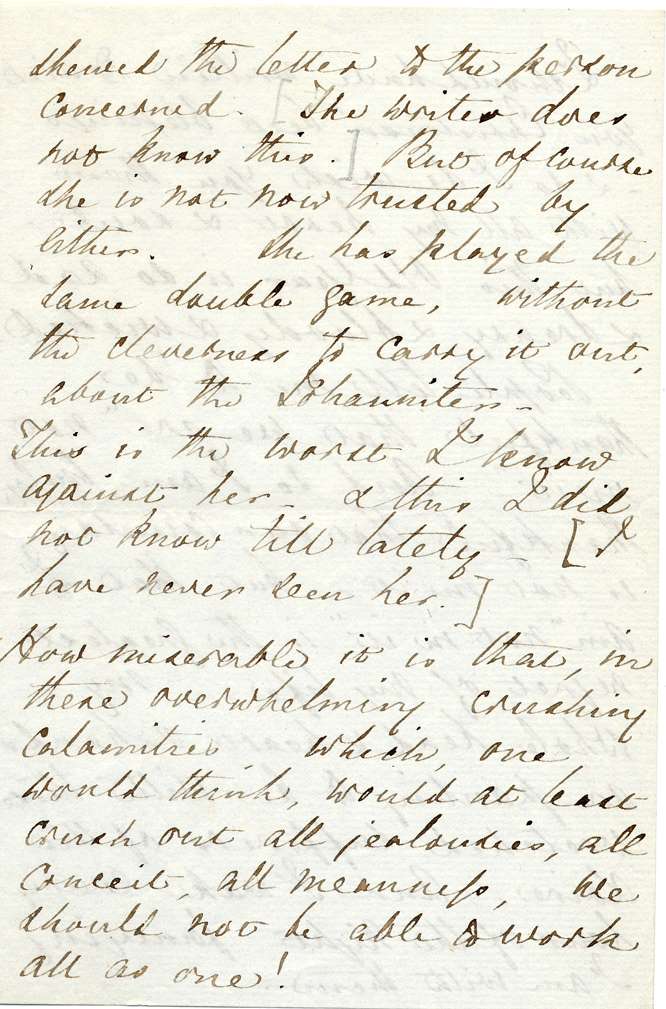 shewed the letter to the person
concerned. [The writer does
not know this.] But of course
she is not now trusted by
either. She has played the
same double game, without
the cleverness to carry it out,
about the Johanniters -
This is the worst I know
against her - & this I did
not know till lately - [I
have never seen her.]
How miserable it is that, in
these overwhelming crushing
calamities, which, one
would think, would at least
crush out all jealousies, all
conceit, all meanness, we
should not be able to work
all as one!